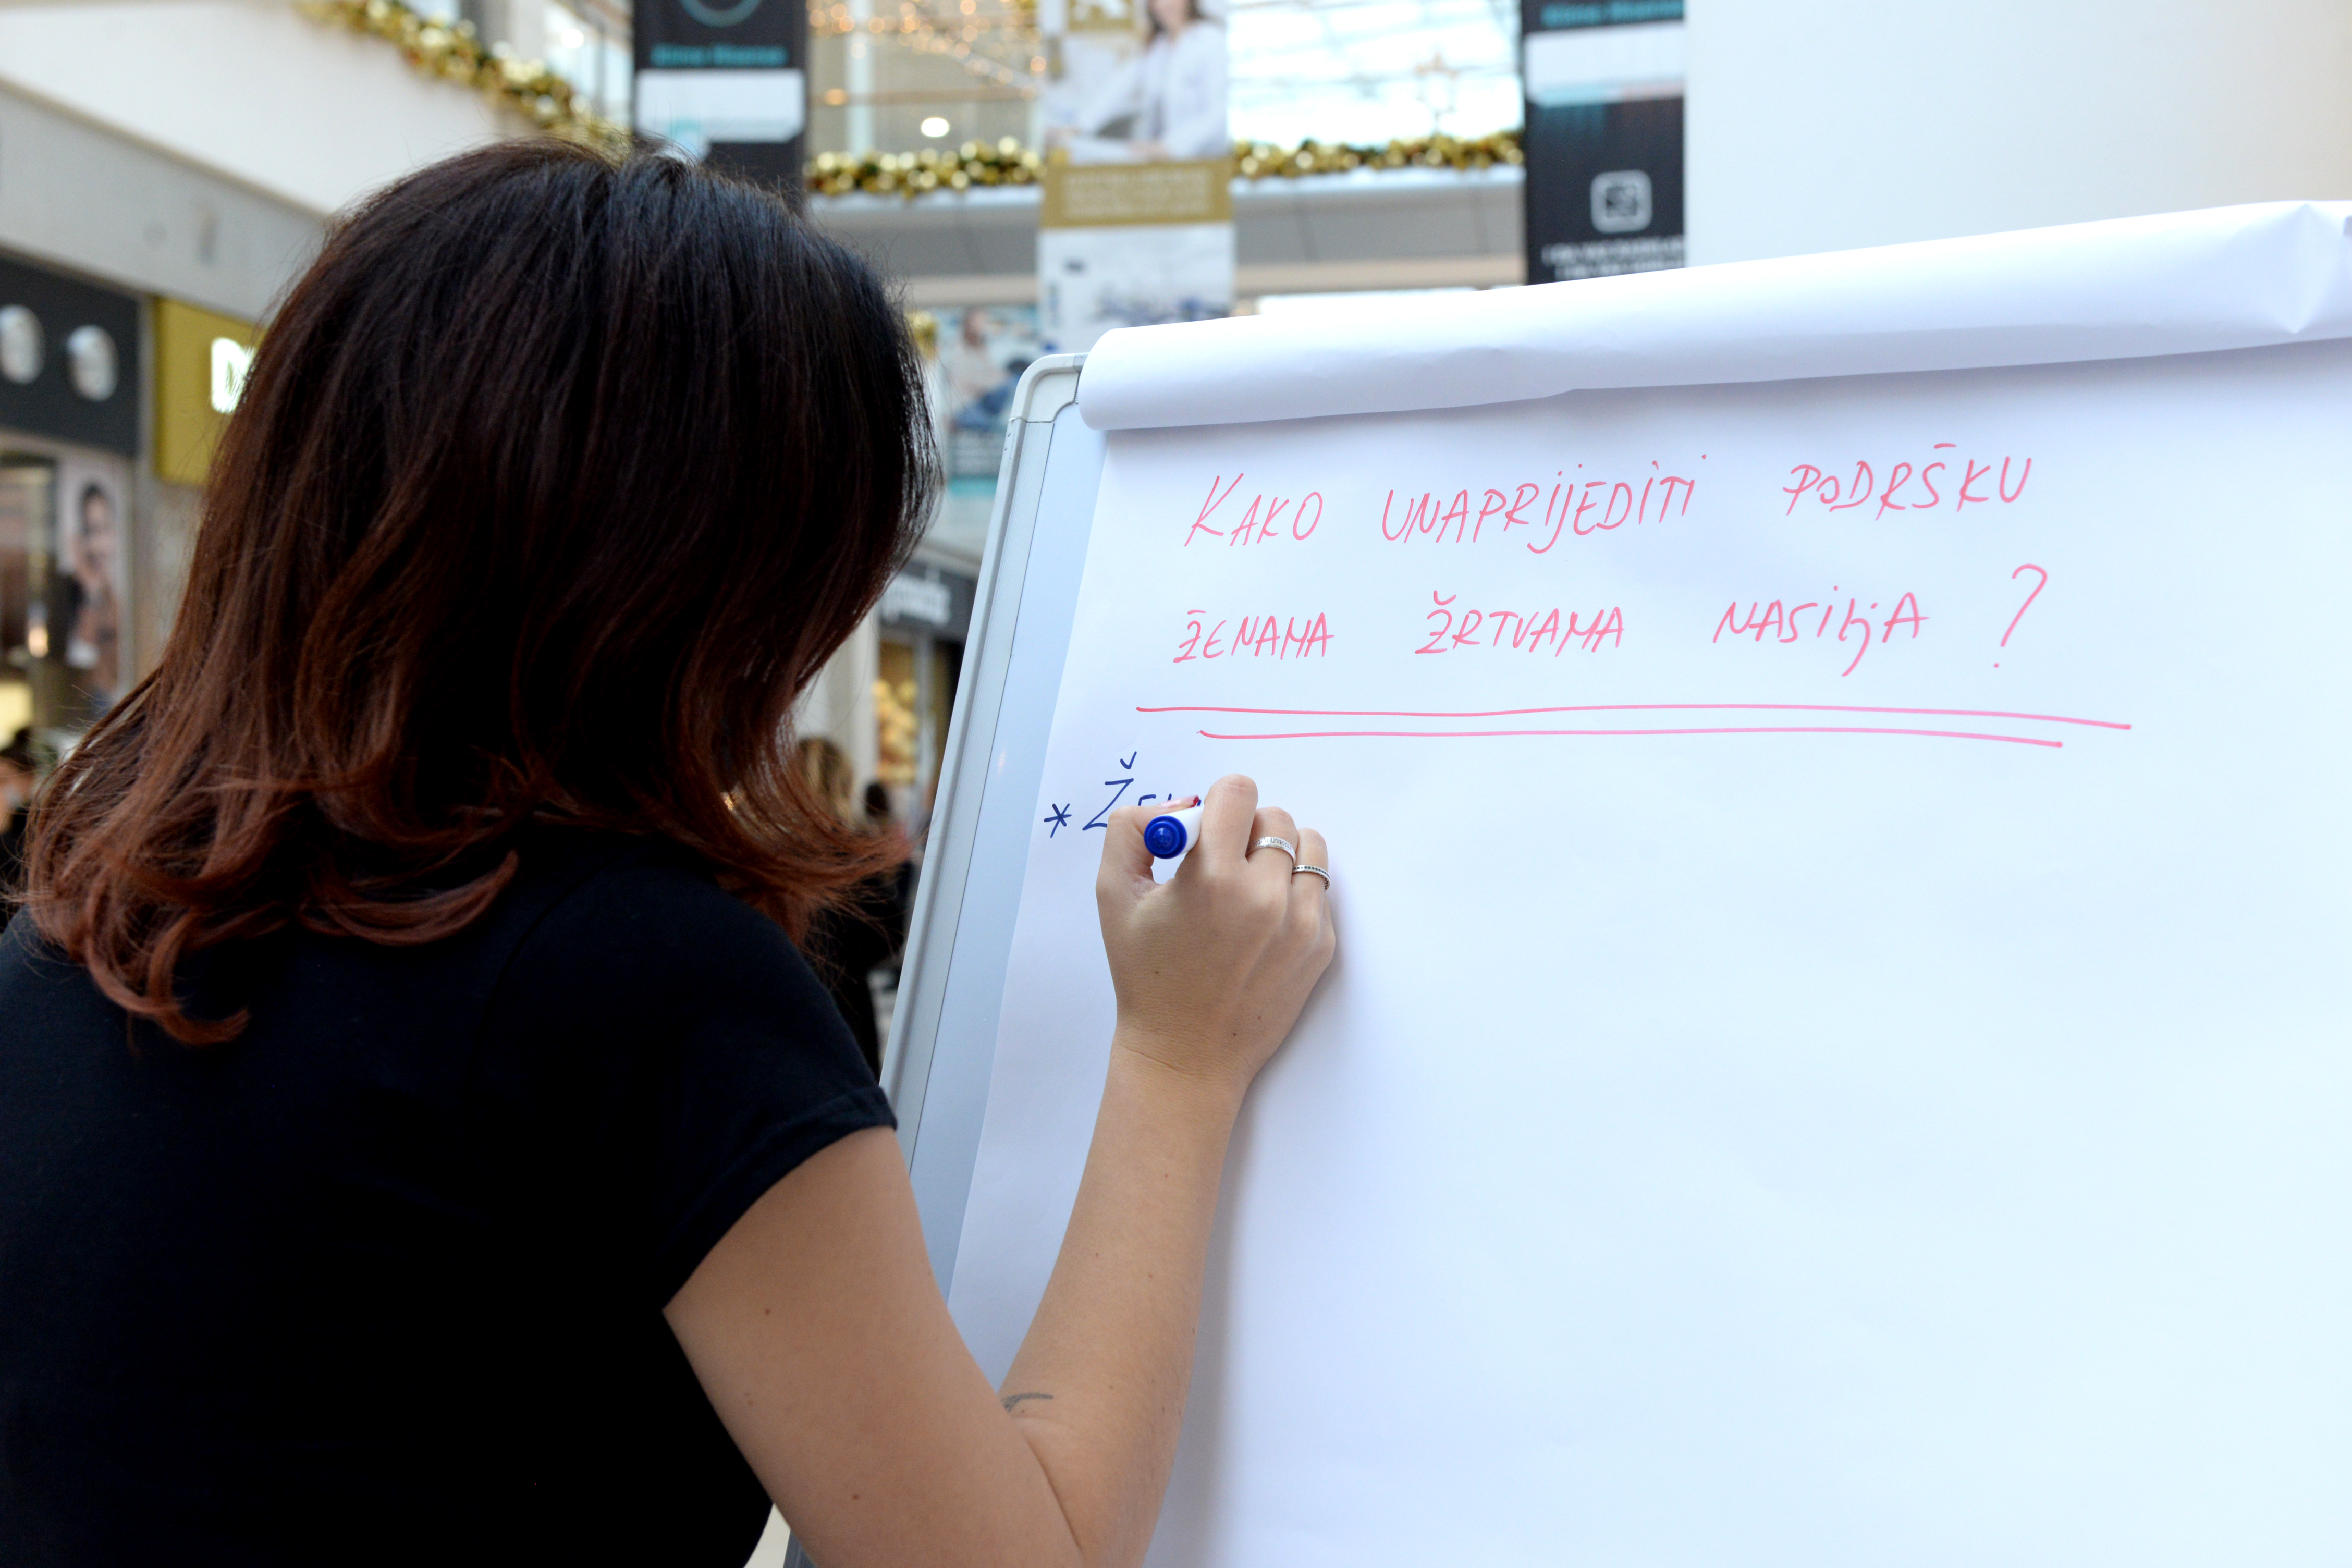 KAKO UNAPRIJEDITI PODRŠKU
ŽENAMA ŽRTVAMA NASILJA ?